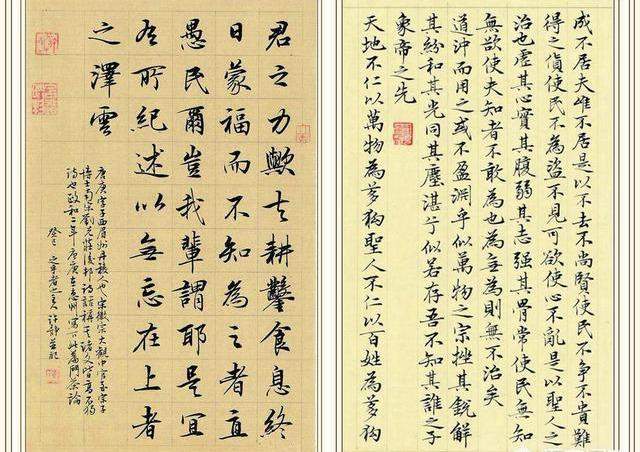 成不居夫唯不居是以不去不尚賢使民不爭不貴難
得之貨使民不為盜不見可欲使心不亂是以聖人之
治也虛其心實其腹弱其志强其骨常使民無知
無欲使夫知者不敢為也為無為則無不治矣
道沖而用之或不盈淵乎似萬物之宗挫其銳解
其紛和其光同其塵湛兮似若存吾不知其誰之子
象帝之先
天地不仁以萬物為芻狗聖人不仁以百姓為芻狗
君之力歟士耕鑿食息終
日蒙福而不知為之者直
愚民爾豈我輩謂耶是宜
有所紀述以無忘在上者
之澤雲
唐庚字子西眉州丹棱人也宋徽宗大觀中官至宗子
博士南宋劉克莊後邨詩話稱其諸文皆高不獨
詩也政和二年唐庚在惠州寫下此篇鬥茶論
癸巳